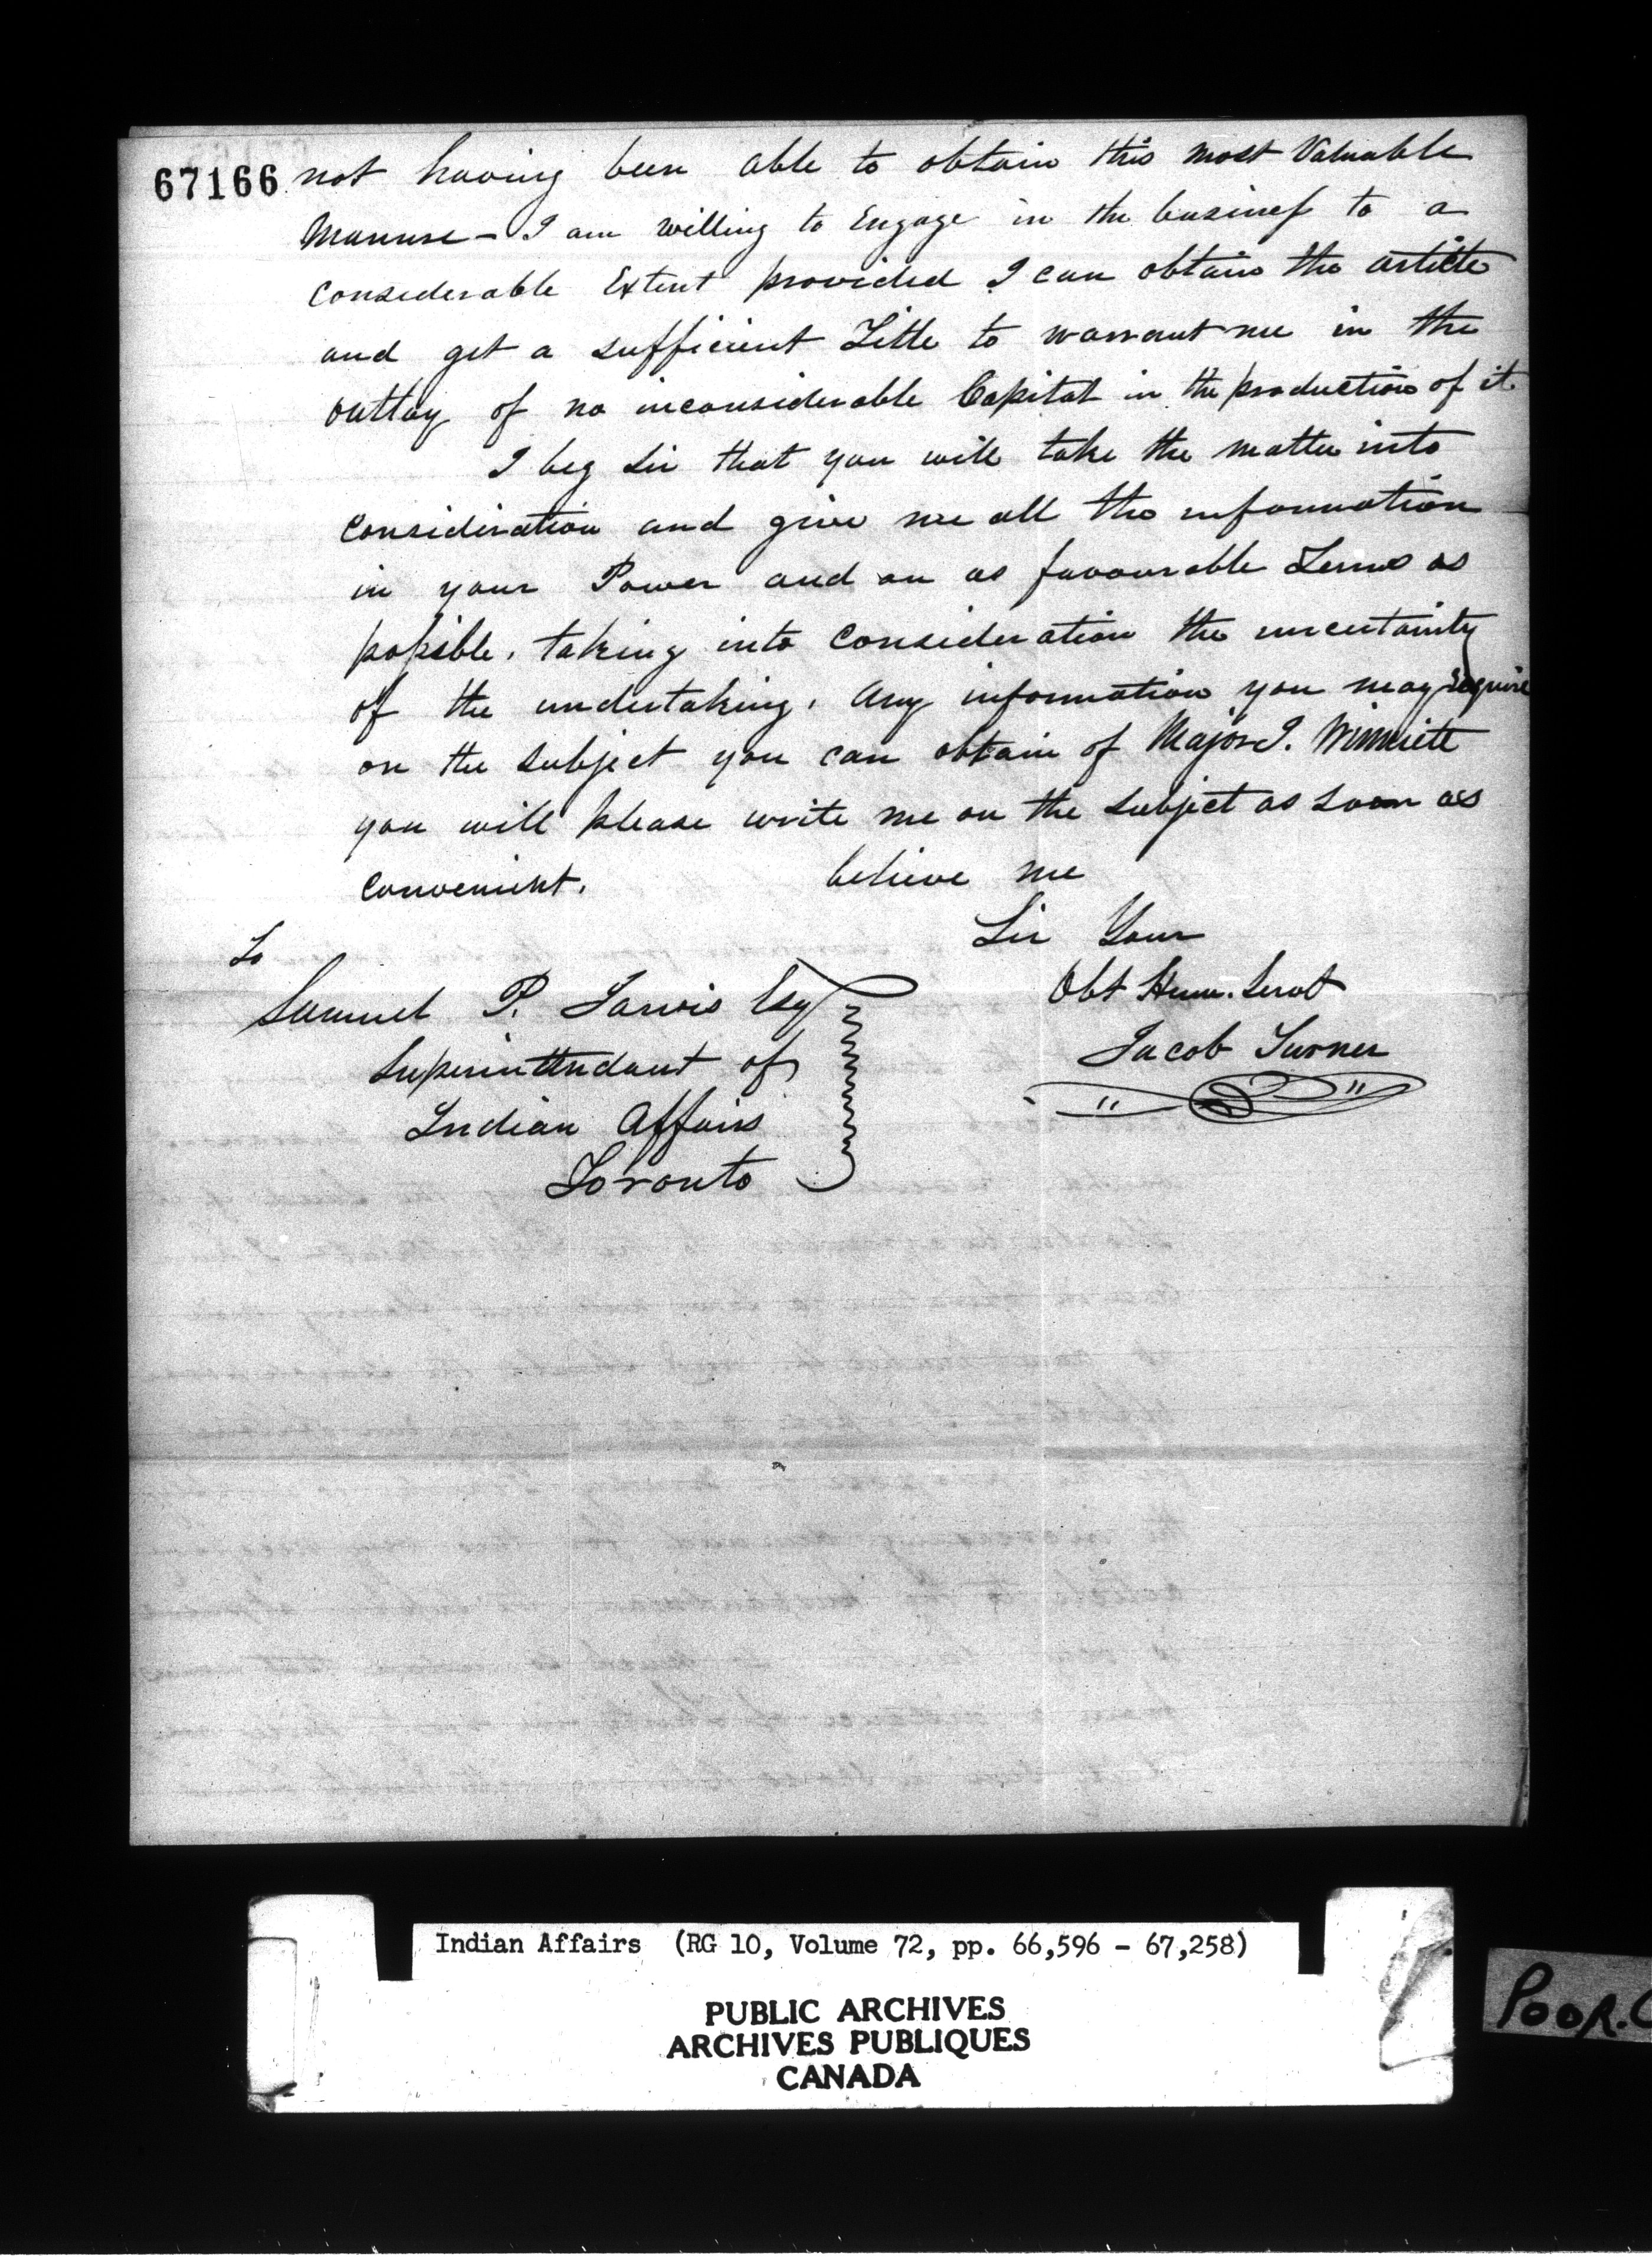 67166 not having been able to obtain this most Valuable
Manure - I am willing to Engage in the business to a
considerable Extent provided I can obtain the article
and get a sufficient Title to warrant me in the
outlay of no inconsiderable Capital in the production of it.
I beg Sir that you will take the matter into
consideration and give me all the information
in your Power and on as favourable Terms as
possible. taking into Consideration the uncertainity
of the undertaking. Any information you may require
on the subject you can obtain of Major J. Winniett
you will please write me on the subject as soon as
convenient. believe me
Sir Your
Obt Hum. Servt
Jacob Turner
To
Samuel P. Jarvis Esq
Superinttendant of
Indian Affairs
Toronto
Indian Affairs (RG 10, Volume 72, pp. 66,596 - 67,258)
PUBLIC ARCHIVES
ARCHIVES PUBLIQUES
CANADA
POOR.